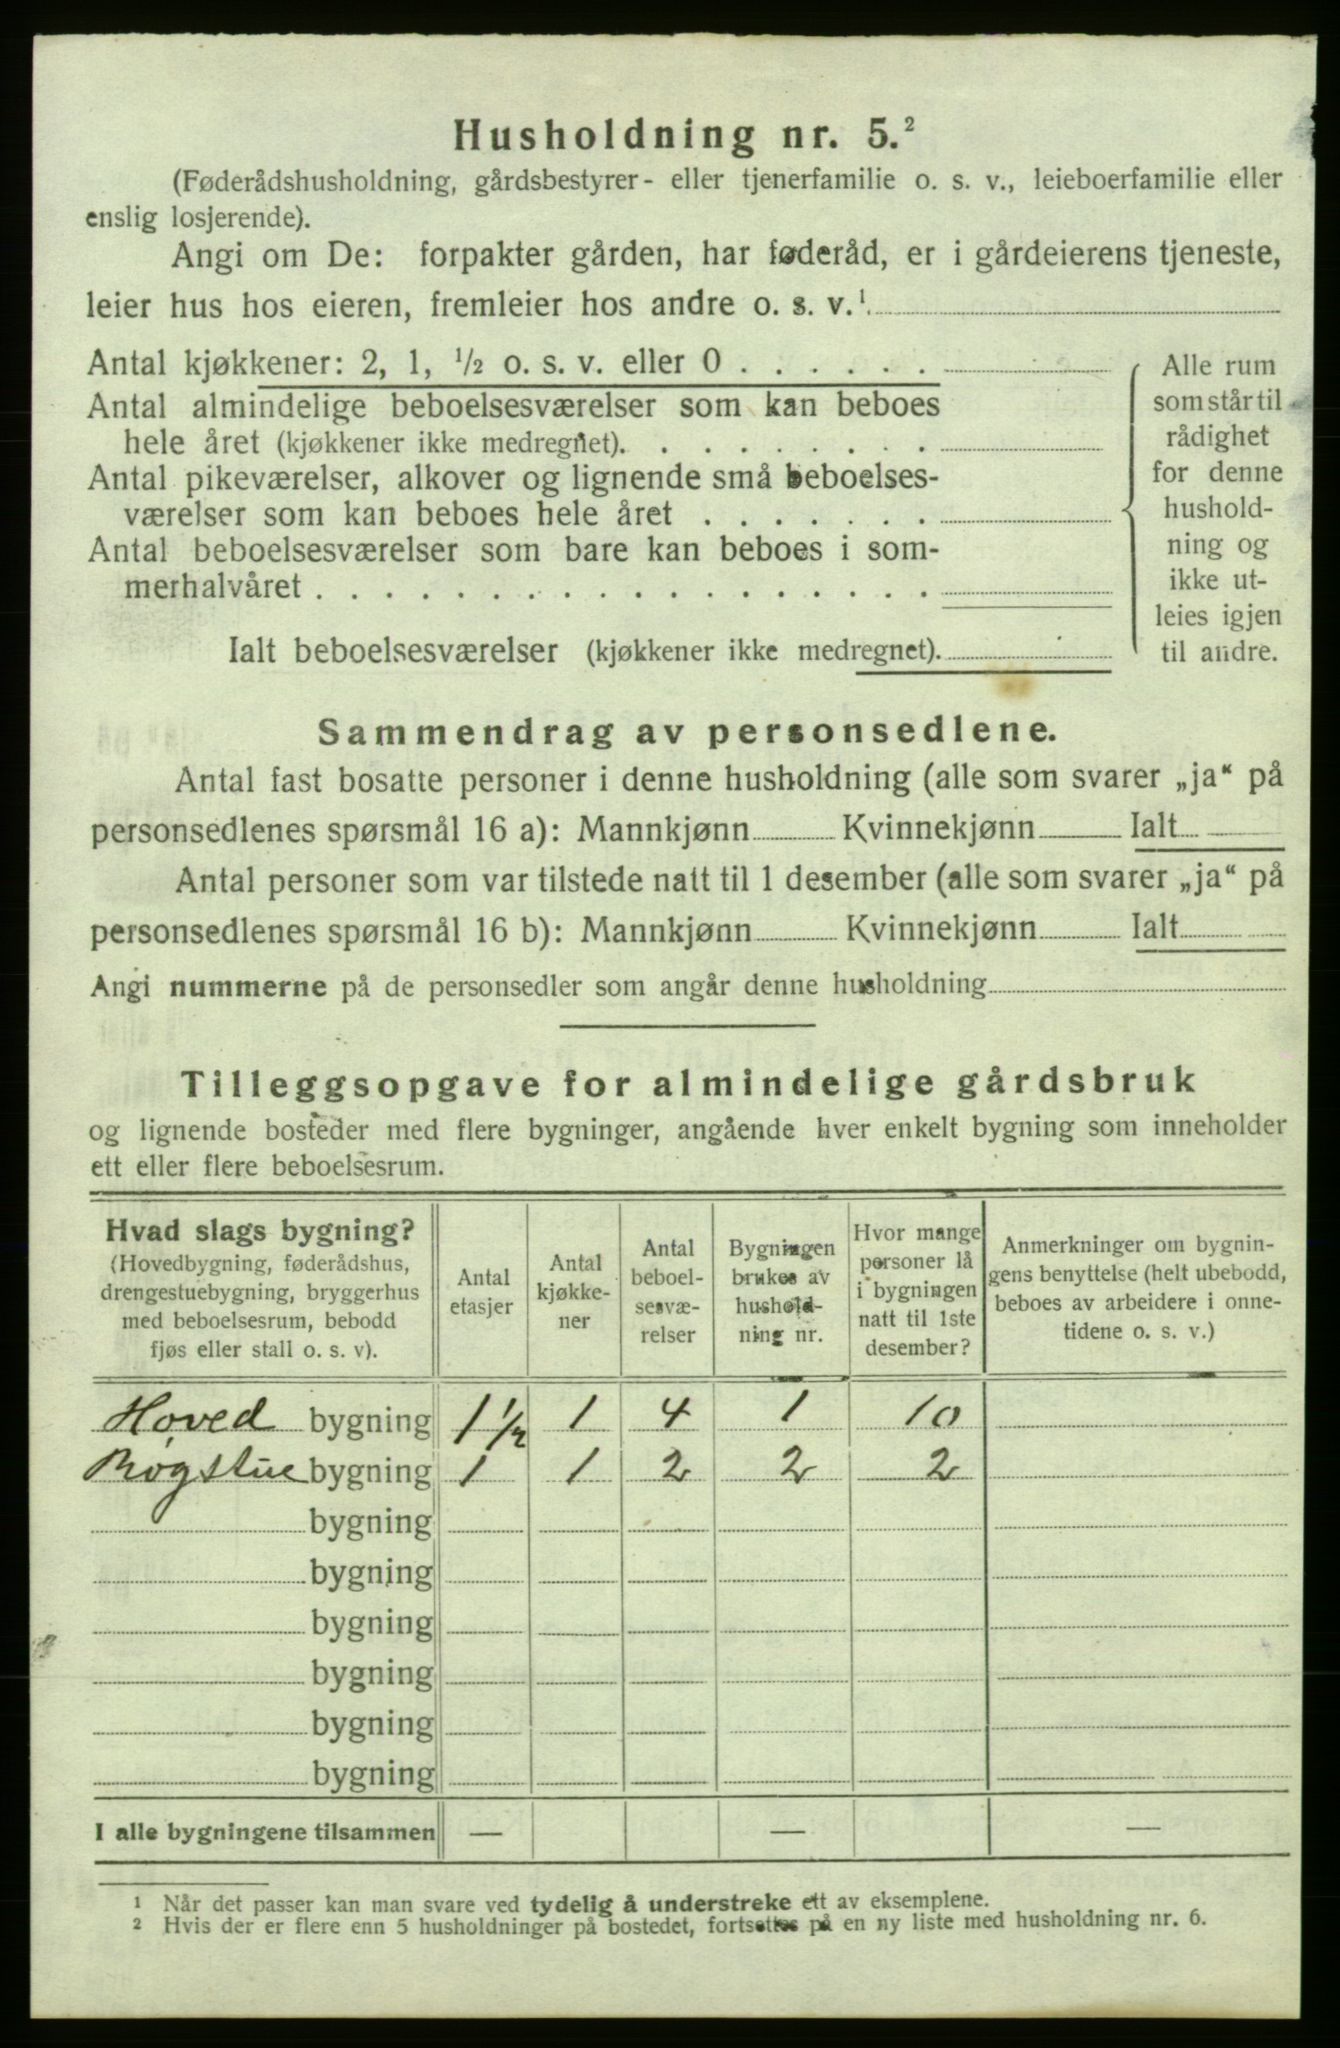 Husholdning nr. 5.²
(Føderådshusholdning, gårdsbestyrer- eller tjenerfamilie o. s. v., leieboerfamilie eller
enslig losjerende).
Angi om De: forpakter gården, har føderåd, er i gårdeierens tjeneste,
leier hus hos eieren, fremleier hos andre o. s. v.¹
Antal kjøkkener: 2, 1, ½ o. s. v. eller 0 . . . . . .
Antal almindelige beboelsesværelser som kan beboes
hele året (kjøkkener ikke medregnet). . . . . . . . .
Antal pikeværelser, alkover og lignende små beboelses-
værelser som kan beboes hele året . . . . . . .
Antal beboelsesværelser som bare kan beboes i som-
merhalvåret . . . . . . . . . . . . . . . . . .
Ialt beboelsesværelser (kjøkkener ikke medregnet).
Alle rum
som står til
rådighet
for denne
hushold-
ning og
ikke ut-
leies igjen
til andre.
Sammendrag av personsedlene.
Antal fast bosatte personer i denne husholdning (alle som svarer „ja“ på
personsedlenes spørsmål 16 a): Mannkjønn Kvinnekjønn Ialt
Antal personer som var tilstede natt til 1 desember (alle som svarer „ja“ på
personsedlenes spørsmål 16 b): Mannkjønn Kvinnekjønn Ialt
Angi nummerne på de personsedler som angår denne husholdning
Tilleggsopgave for almindelige gårdsbruk
og lignende bosteder med flere bygninger, angående hver enkelt bygning som inneholder
ett eller flere beboelsesrum.
Hvad slags bygning?
(Hovedbygning, føderådshus,
drengestuebygning, bryggerhus
med beboelsesrum, bebodd
fjøs eller stall o. s. v).
Antal
etasjer
Antal
kjøkke-
ner
Antal
beboel-
sesvæ-
relser
Bygningen
brukes av
hushold-
ning nr.
Hvor mange
personer lå
i bygningen
natt til 1ste
desember?
Anmerkninger om bygnin-
gens benyttelse (helt ubebodd,
beboes av arbeidere i onne-
tidene o. s. v.)
Hoved bygning 1 1/2 1 4 1 10
Røgstue bygning 1 1 2 2 2
bygning
bygning
bygning
bygning
bygning
bygning
I alle bygningene tilsammen — — —
¹ Når det passer kan man svare ved tydelig å understreke ett av eksemplene.
² Hvis der er flere enn 5 husholdninger på bostedet, fortsettes på en ny liste med husholdning nr. 6.